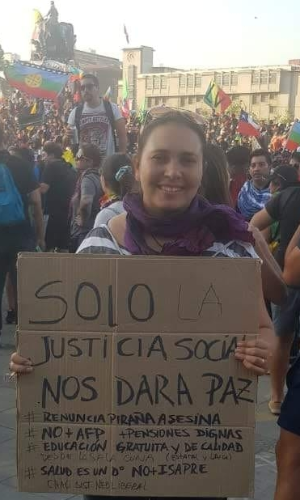 SOLO LA
JUSTICIA SOCIAL
NOS DARA PAZ
# RENUNCIA PIRAÑA ASESINA
# NO+AFP +PENSIONES DIGNAS
# EDUCACIÓN GRATUITA Y DE CALIDAD
DESDE
# SALUD ES UN D° NO+ISAPRE